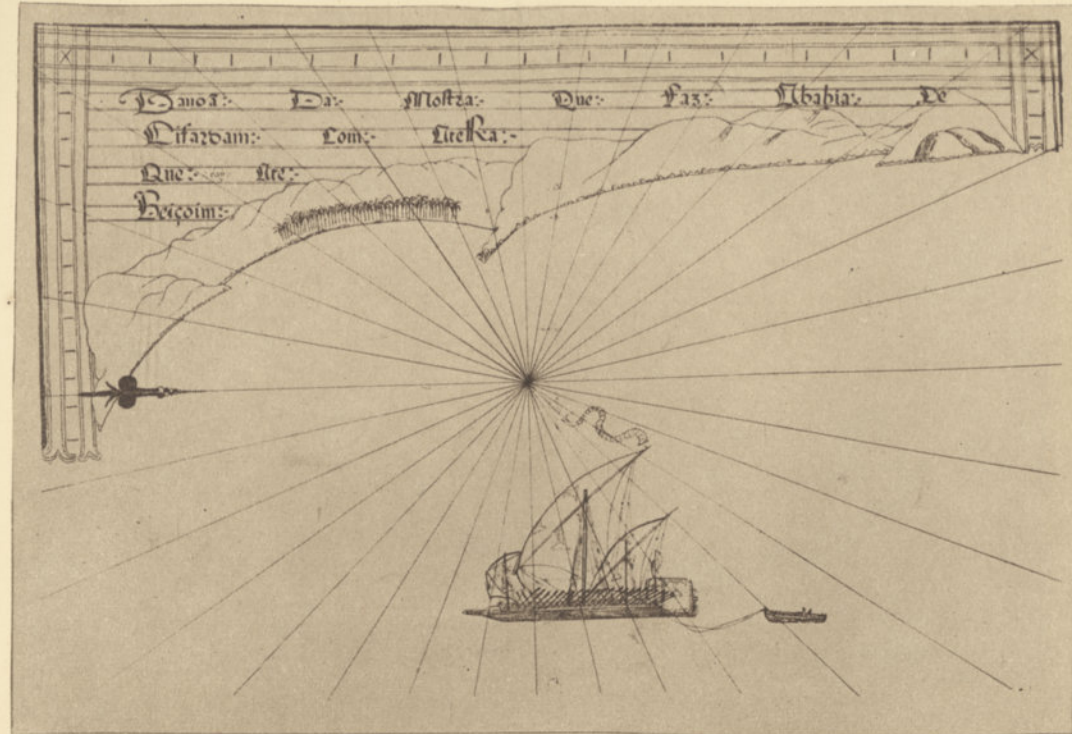 Da: Mostra: Que: Faz: Abahia: De
Cifardam: Com: Aterra:
Que: Ate:
Beiçoim: